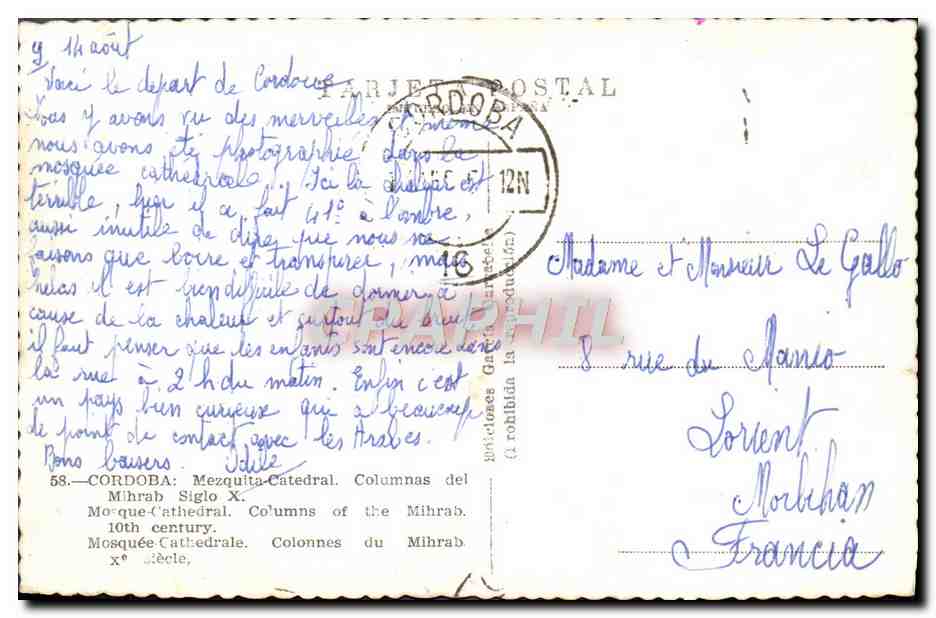 14 août
Voici le depart de Cordoue
Nous y avons vu des merveilles et meme
nous avons été photographié dans la
mosquée cathédrale. Ici la chaleur est
terrible, hier il a fait 41° à l'ombre,
aussi inutile de dire que nous ne
faisons que boire et transpirer, mais
helas il est bien difficile de dormir à
cause de la chaleur et surtout du bruit
il faut penser que les enfants sont encore dans
la rue à 2 h du matin. Enfin c'est
un pays bien curieux qui a beaucoup
de point de contact avec les Arabes.
Bons baisers. Odile
58.—CORDOBA: Mezquita-Catedral. Columnas del
Mihrab Siglo X.
Mosque-Cathedral. Columns of the Mihrab.
10th century.
Mosquée-Cathedrale. Colonnes du Mihrab
Xe Siècle.
TARJETA POSTAL
CORDOBA
12N
16
Ediciones García Garrabella
(Prohibida la reproducción)
CPAPHIL
Madame et Monsieur Le Gallo
8 rue du Manio
Lorient
Morbihan
Francia